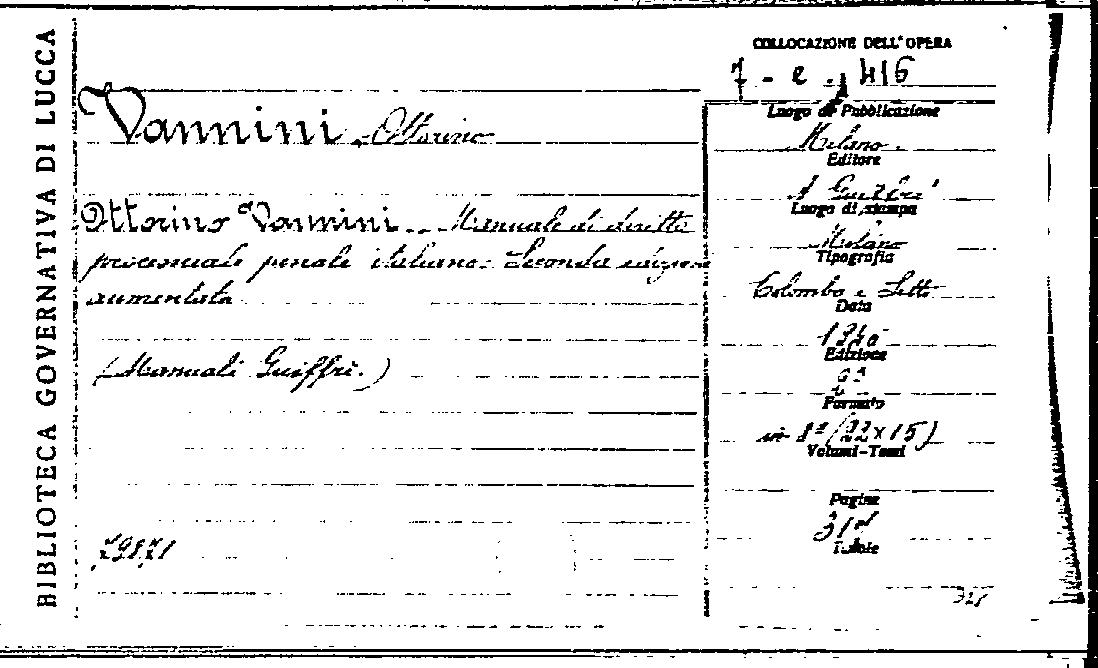 BIBLIOTECA GOVERNATIVA DI LUCCA
COLLOCAZIONE DELL'OPERA
7 - e. 416
Vannini Ottorino
Luogo di Pubblicazione
Milano.
Editore
Ottorino Vannini... Manuale di diritto
processuale penale italiano. Seconda edizione
aumentata
(Manuali Guiffrè.)
Luogo di stampa
Milano
Tipografia
Colombo e
Data
Edizione
Formato
in 8° (22 x 15)
Volumi-Tomi
Pagine
Tavole